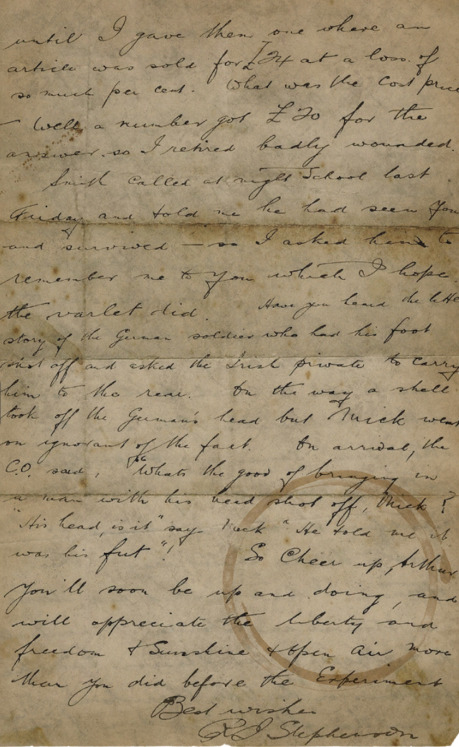 until I gave them one where an
article was sold for £24 at a loss of
so much per cent. What was the Cost price
– Well, a number got £20 for the
answer. so I retired badly wounded.
Smith called at night School last
Friday and told me he had seen you
and survived — so I asked him to
remember me to you which I hope
the varlet did. Have you heard the little
story of the German soldier who had his foot
shot off and asked the Irish private to carry
him to the rear. On the way a shell
took off the German's head but Mick went
on ignorant of the fact. On arrival, the
C.O. said, "Whats the good of bringing in
a man with his head shot off, Mick?
"His head, is it" says Mick "He told me it
was his fut"! So Cheer up, Arthur
you'll soon be up and doing, and
will appreciate the liberty and
freedom & Sunshine & open air more
than you did before the Experiment
Best wishes
R J Stephenson